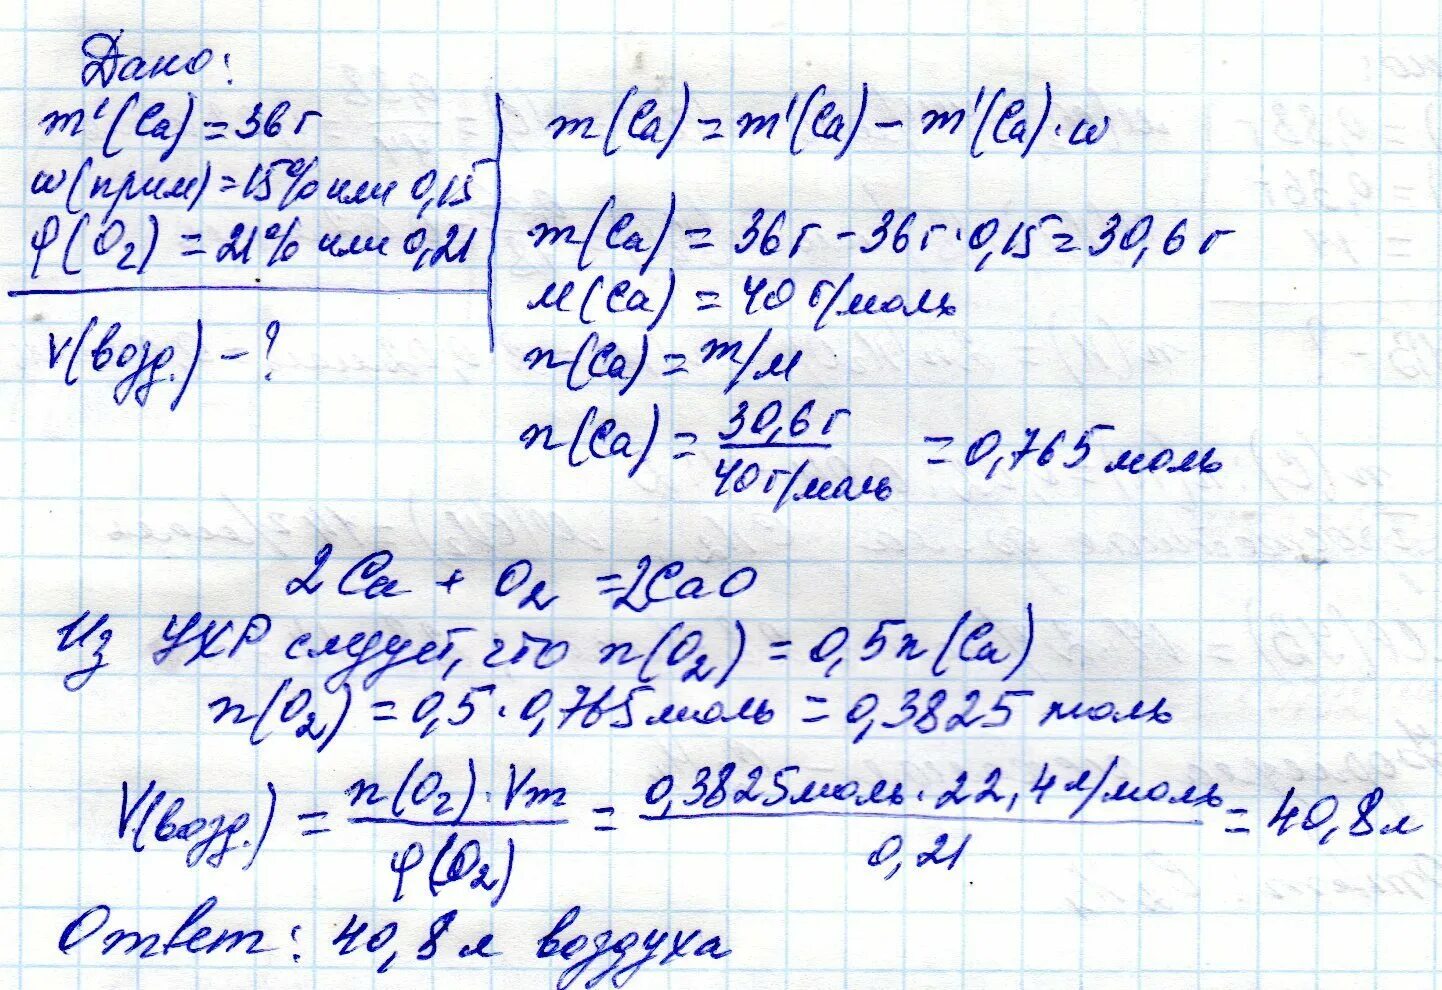 Дано:
m'(Ca) = 36 г
w(прим) = 15% или 0,15
φ(O₂) = 21% или 0,21
V(возд.) - ?
m(Ca) = m'(Ca) - m'(Ca)·w
m(Ca) = 36 г - 36 г · 0,15 = 30,6 г
M(Ca) = 40 г/моль
n(Ca) = m/M
n(Ca) = 30,6 г / 40 г/моль = 0,765 моль
2Ca + O₂ = 2CaO
Из УХР следует, что n(O₂) = 0,5n(Ca)
n(O₂) = 0,5 · 0,765 моль = 0,3825 моль
V(возд.) = n(O₂) · Vm / φ(O₂) = 0,3825 моль · 22,4 л/моль / 0,21 = 40,8 л
Ответ: 40,8 л воздуха